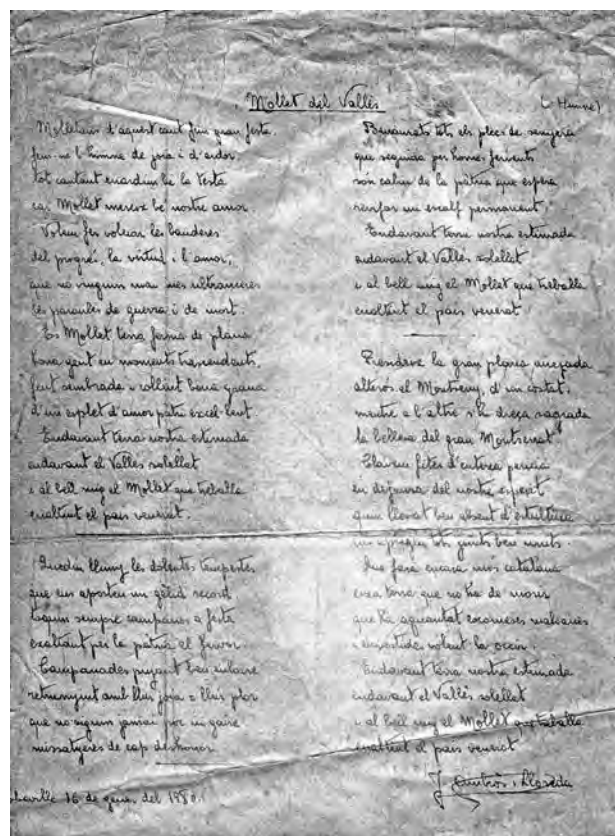 Mollet del Vallès
(Himne)
Molletans d'aquest cant fem gran festa.
fem-ne l'himne de joia i d'ardor
tot cantant enardim bé la testa
car Mollet mereix bé nostre amor
Volem fer voleiar les banderes
del progrés, la virtut i l'amor,
que no vinguin mai més ultranceres
les paraules de guerra i de mort.
És Mollet terra ferma de plana
bona gent en moments trascendents,
fent sembrada i collint bona grana
d'un esplet d'amor patri excel·lent.
Endavant terra nostra estimada
endavant el Vallès solellat
i al bell mig el Mollet que treballa
enaltint el país venerat.
Quedin lluny les dolentes tempestes
que ens aporten un gèlid record
toquin sempre campanes a festa
exaltant per la pàtria el fervor.
Campanades pujant ben enlaire
retruenyint amb llur joia o llur plor
que no siguin jamai per un gaire
missatgeres de cap deshonor.
Benaurats tots els plecs de senyera
que seguida per homes fervents
són caliu de la pàtria que espera
escalf permanent.
Endavant terra nostra estimada
endavant el Vallès solellat
i al bell mig el Mollet que treballa
enaltint el país venerat.
la gran plana
alterós el Montseny, d'un costat,
mentre a l'altre s'hi dreça sagrada
la bellesa del gran Montserrat.
fites d'entesa
en del nostre esperit
absent
tots junts ben units.
Que fou encara més catalana
eixa terra que no ha de morir
que ha aguantat
volent
Endavant terra nostra estimada
endavant el Vallès solellat
i al bell mig el Mollet que treballa
enaltint el país venerat
16 de gener del 1980